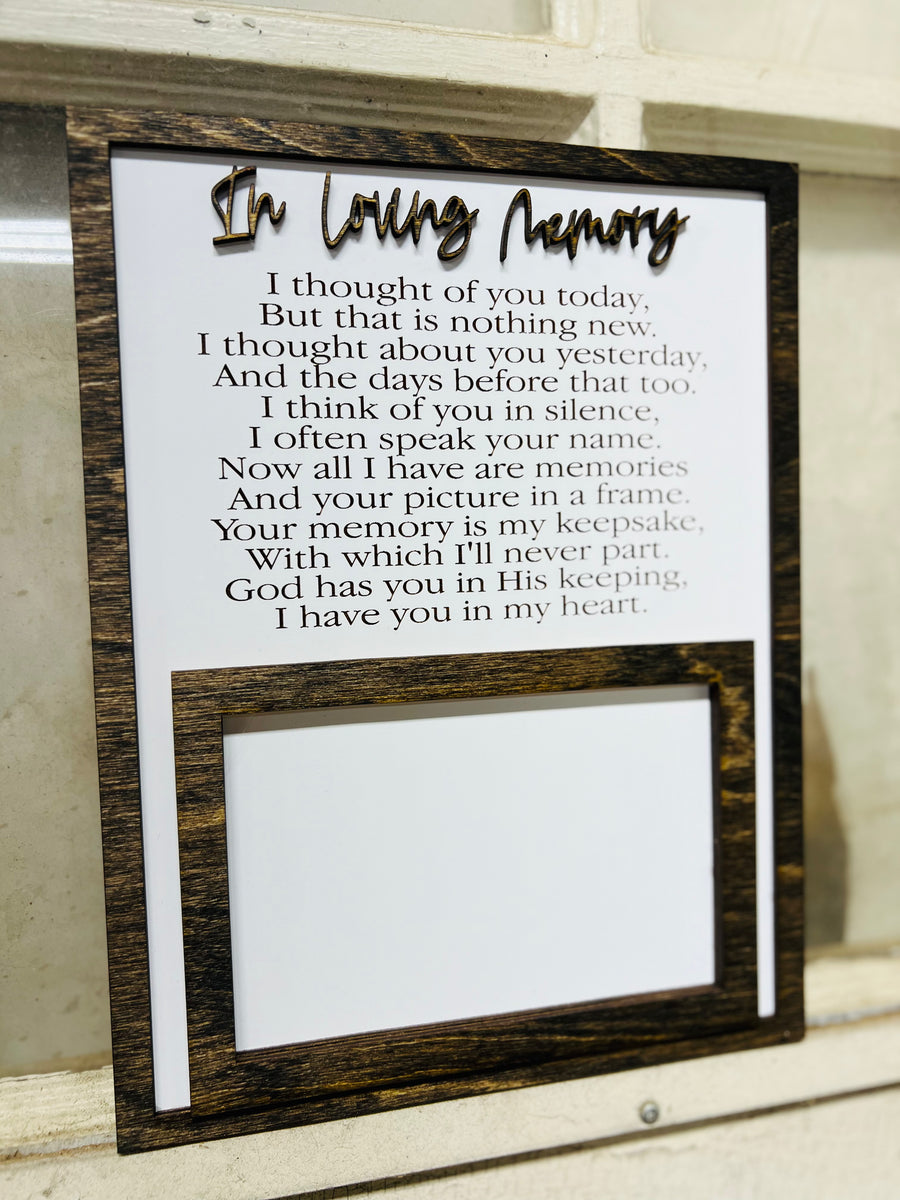 In Loving Memory
I thought of you today,
But that is nothing new.
I thought about you yesterday,
And the days before that too.
I think of you in silence,
I often speak your name.
Now all I have are memories
And your picture in a frame.
Your memory is my keepsake,
With which I'll never part.
God has you in His keeping,
I have you in my heart.